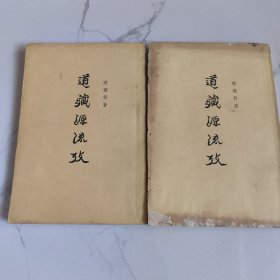 道藏源流攷
陳國符著
道藏源流攷
陳國符著